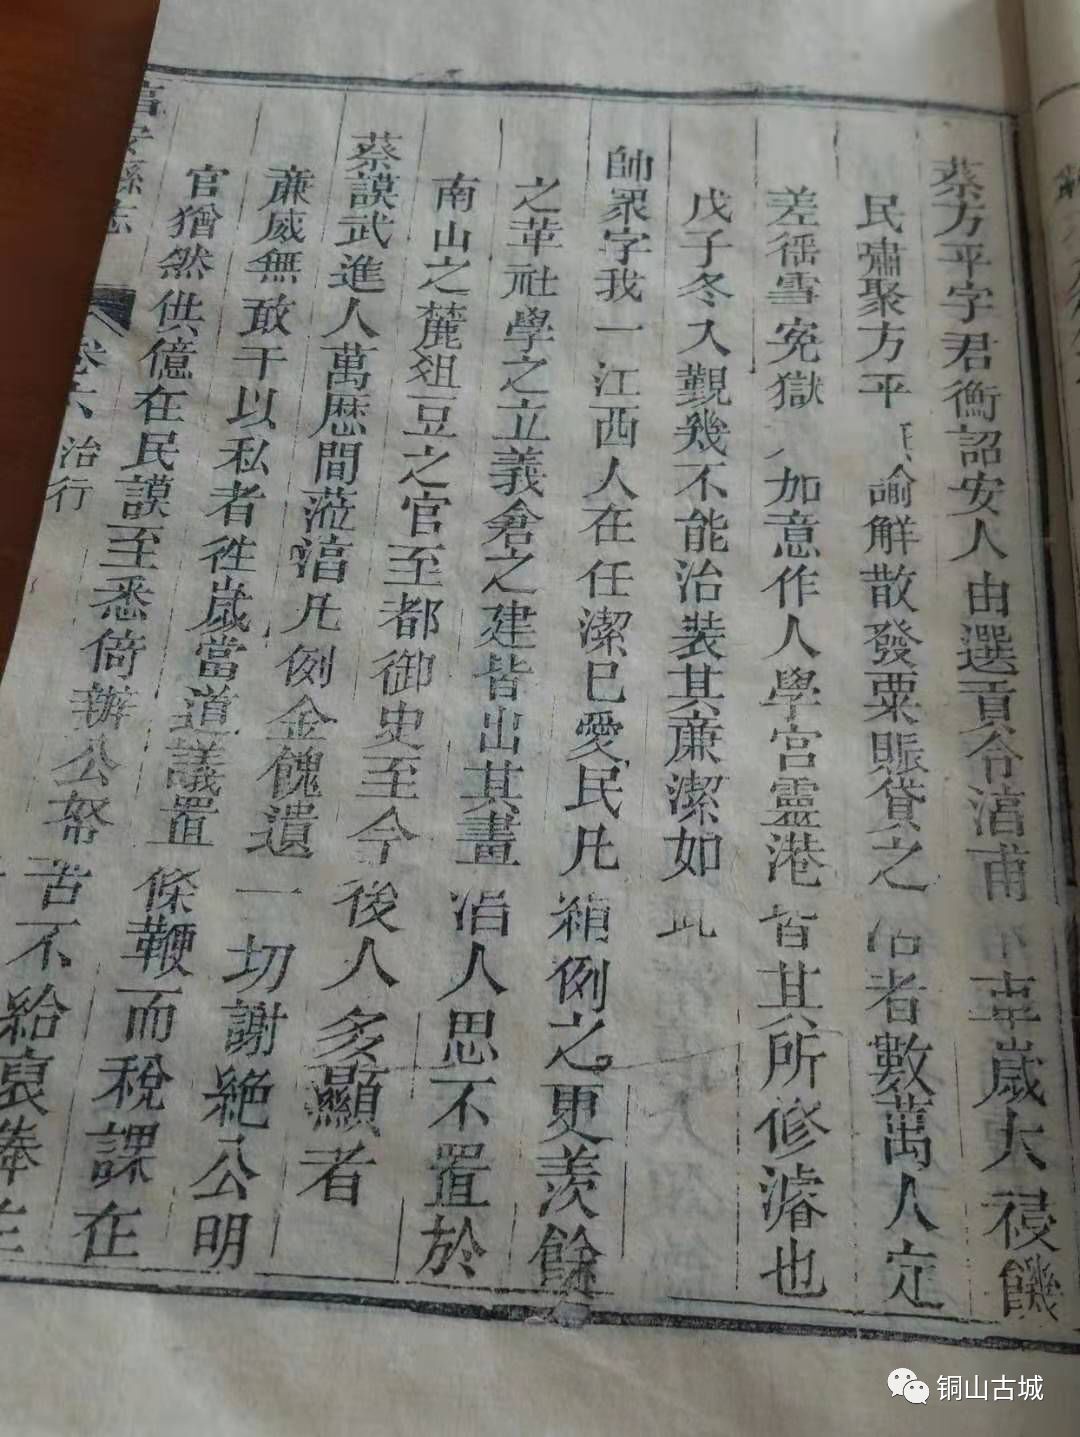 蔡方平字君衡詔安人由選貢令湻甫 辛歲大祲饑
民嘯聚方平 諭解散發粟賑貸之 活者數萬人定
差徭雪寃獄 加意作人學宮靈港皆其所修濬也
戊子冬入覲幾不能治裝其亷潔如此
帥眾字我一江西人在任潔已愛民凡 例之更羨餘
之革社學之立義倉之建皆出其畫 湻人思不置於
南山之麓俎豆之官至都御史至今後人多顯者
蔡謨武進人萬歷間蒞湻凡例金餽遺一切謝絶公明
亷威無敢干以私者徃歲當道議置條鞭而稅課在
官猶然供億在民謨至悉倚辦公帑苦不給裒俸
安縣志
卷六 治行
铜山古城